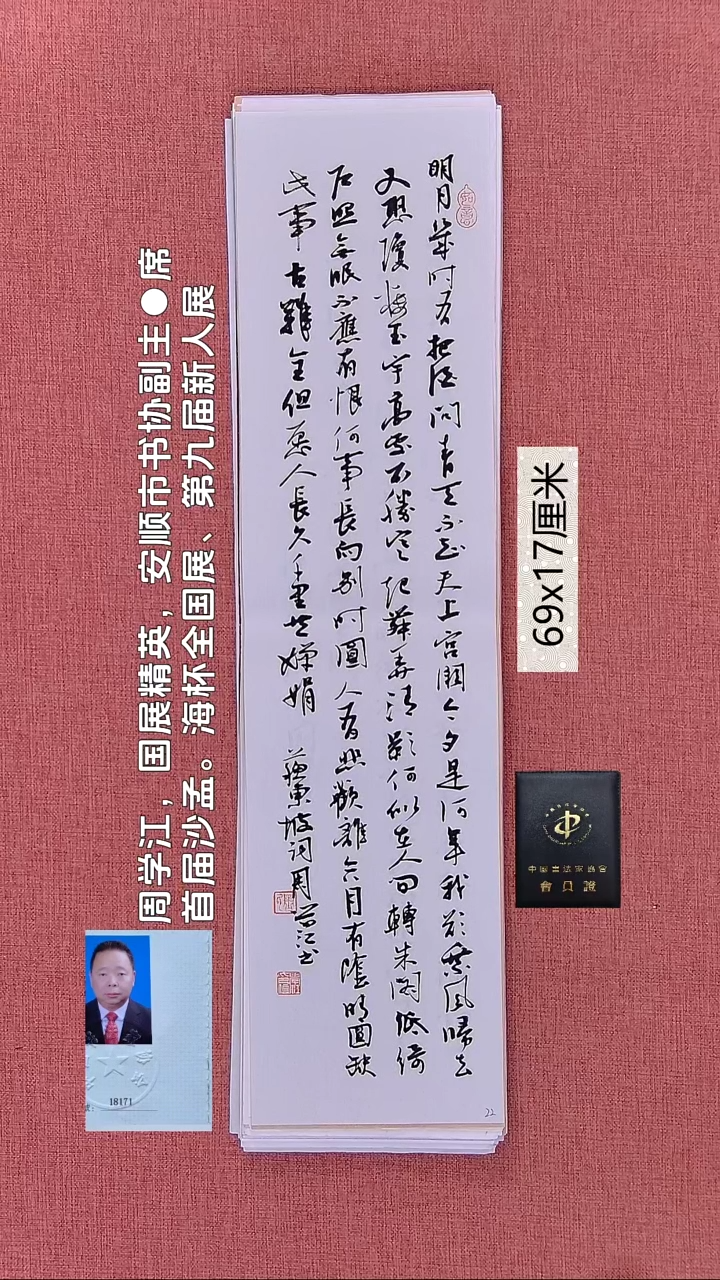 明月幾时有把酒问青天不知天上宫阙今夕是何年我欲乘风归去
又恐瓊楼玉宇高处不勝寒起舞弄清影何似在人间轉朱阁低绮
户照无眠不應有恨何事長向别时圓人有悲歡離合月有陰晴圆缺
此事古難全但愿人長久千里共嬋娟 蘇東坡词周学江书
22
周学江，国展精英，安顺市书协副主●席
首届沙孟。海杯全国展、第九届新人展
69x17厘米
會員證
18171